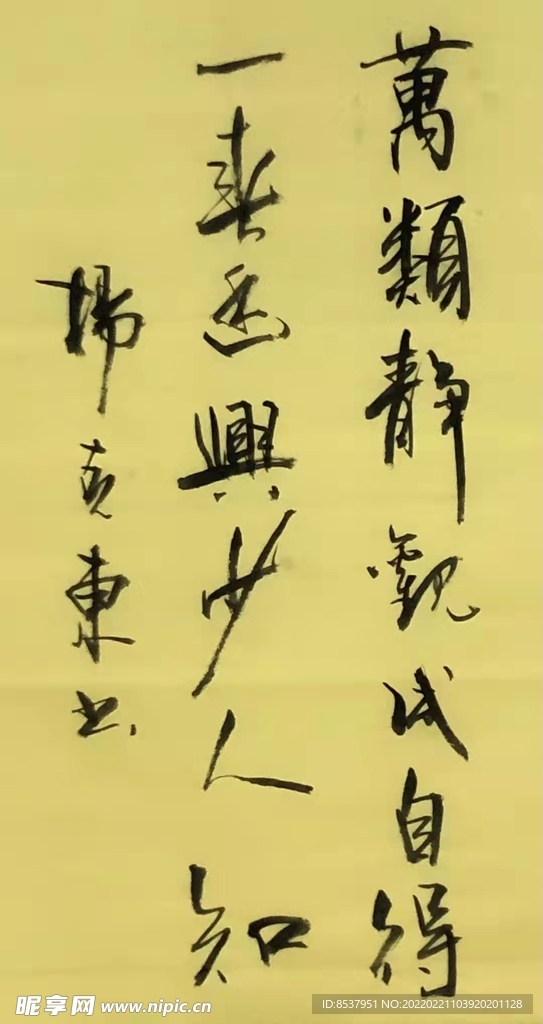 萬類靜觀咸自得
一春幽興少人知
楊克東书
昵享网 www.nipic.cn
ID:8537951 NO:20220221103920201128